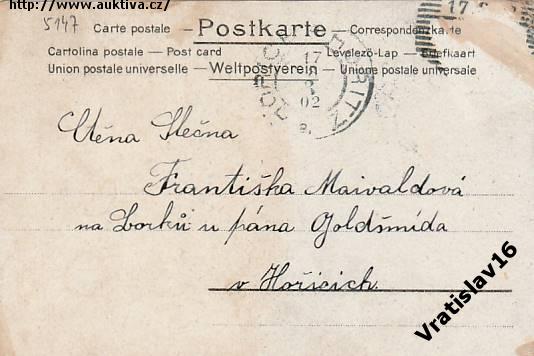 http://www.auktiva.cz/
5147
Carte postale – Postkarte – Correspondenzkarte
Cartolina postale – Post card Levelezö-Lap – Briefkaart
Union postale universelle – Weltpostverein – Unione postale universale
17
17
02
Ctěna Slečna
Františka Maivaldová
na Borků u pána Goldšmída
v Hořicich
Vratislav16